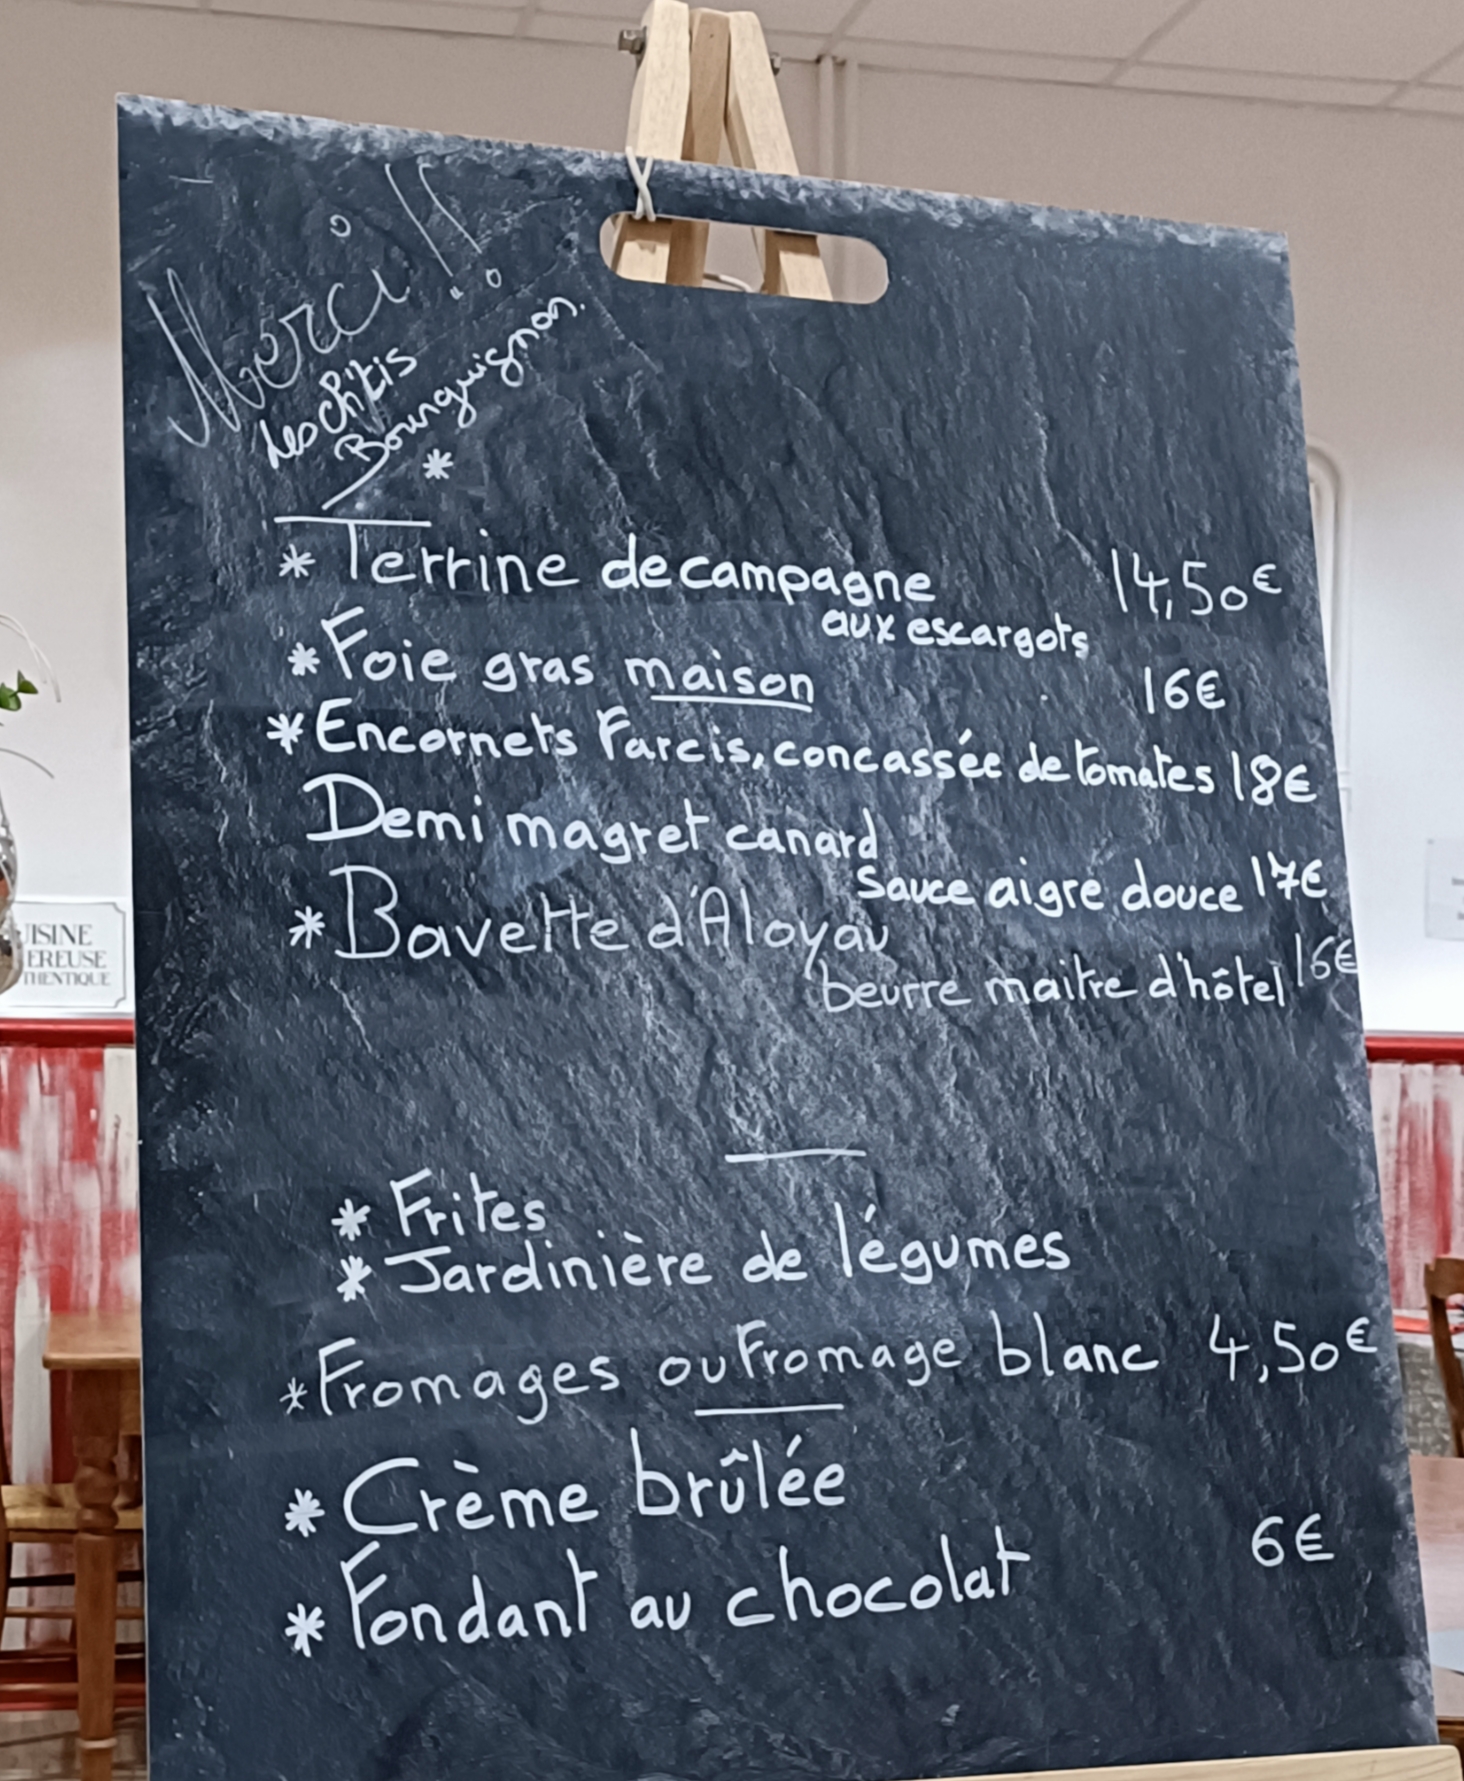 Merci !!
Les Ch'tis
Bourguignon.
*
* Terrine de campagne 14,50€
aux escargots
* Foie gras maison 16€
* Encornets Farcis, concassée de tomates 18€
Demi magret canard
sauce aigre douce 17€
* Bavette d'Aloyau
beurre maitre d'hôtel 16€
* Frites
* Jardinière de légumes
* Fromages ou Fromage blanc 4,50€
* Crème brûlée
6€
* Fondant au chocolat
UISINE
EREUSE
THENTIQUE